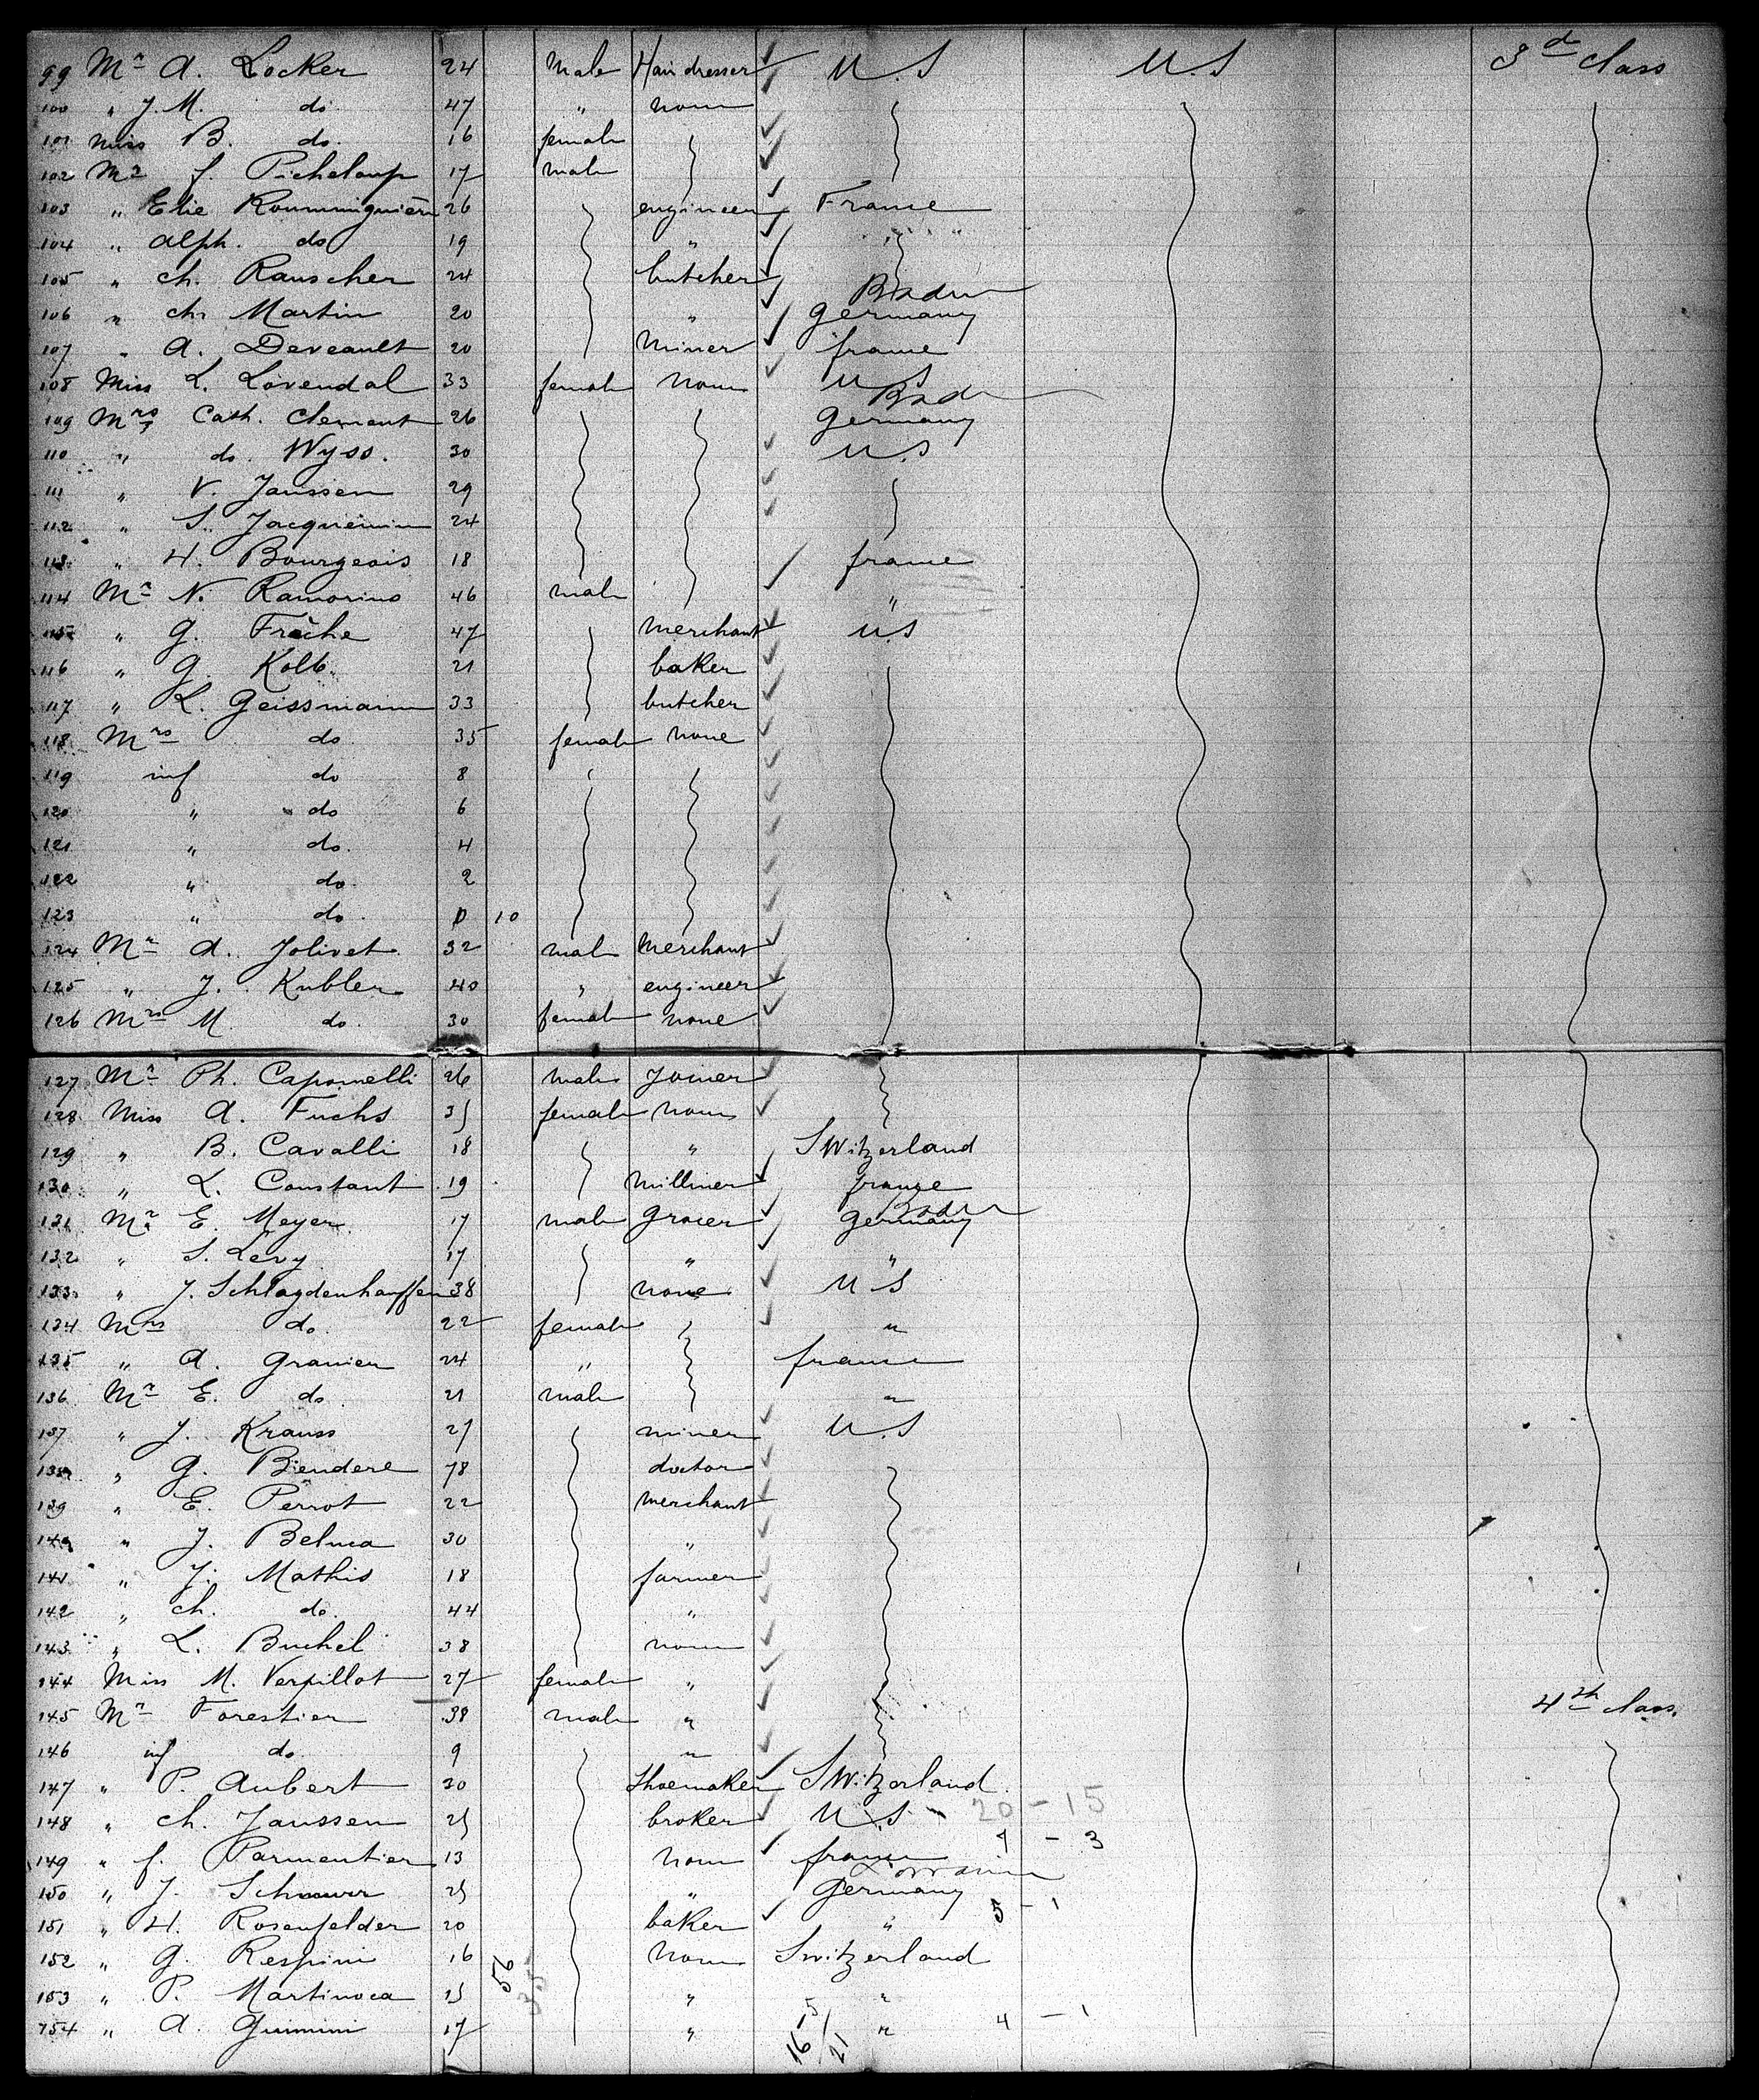 99 Mr A. Locker 24 Male Hairdresser U.S U.S 3d class
100 " J. M. do 47 " none
101 Miss B. do. 16 female
102 Mr f. Picheloup 17 male
103 " Elie Roumminguière 26 engineer France
104 " Alph. do 19 " "
105 " ch. Rauscher 24 butcher Baden
106 " ch. Martin 20 " Germany
107 " A. Deveault 20 Miner france
108 Miss L. Lövendal 33 female none U S
109 Mrs Cath. Clement 26 Baden Germany
110 " do. Wyss. 30 U.S
111 " V. Janssen 29
112 " S. Jacquemin 24
113 " H. Bourgeois 18 france
114 Mr N. Ramorino 46 male "
115 " G. Frèche 47 Merchant U.S
116 " G. Kolb. 21 baker
117 " L. Geissmann 33 butcher
118 Mrs do 35 female none
119 inf do 8
120 " do 6
121 " do. 4
122 " do. 2
123 " do. 0 10
124 Mr A. Jolivet 32 male Merchant
125 " J. Kubler 40 " engineer
126 Mrs M. do. 30 female none
127 Mr Ph. Caponelli 26 male Joiner
128 Miss A. Fuchs 35 female none
129 " B. Cavalli 18 " Switzerland
130 " L. Constant 19 milliner france
131 Mr E. Meyer 17 male Grocer Baden Germany
132 " S. Levy 17 " "
133 " J. Schlagdenhauffen 38 none U S
134 Mrs do. 22 female "
135 " A. Granier 24 " france
136 Mr E. do. 21 male "
137 " J. Krauss 27 miner U.S
138 " G. Biendere 78 doctor
139 " E. Perrot 22 Merchant
140 " J. Beluca 30 "
141 " J. Mathis 18 farmer
142 " ch. do. 44 "
143 " L. Buchel 38 none
144 Miss M. Verpillot 27 female "
145 Mr Forestier 38 male " 4th class.
146 inf do. 9 "
147 " P. Aubert 20 Shoemaker Switzerland.
148 " ch. Janssen 25 broker U.S 20 - 15
149 " f. Parmentier 13 none france 7 - 3
150 " J. 25 " Lorraine Germany
151 " H. Rosenfelder 20 baker " 5 - 1
152 " G. Respini 16 none Switzerland
153 " P. Martinoca 15 56 35 " "
154 " A. Guimini 17 " 5 16/21 " 4 - 1